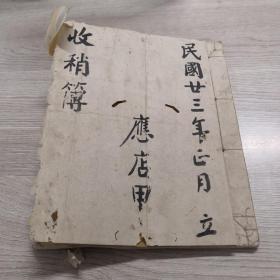 民國廿三年正月 立
應店甲
收稍簿